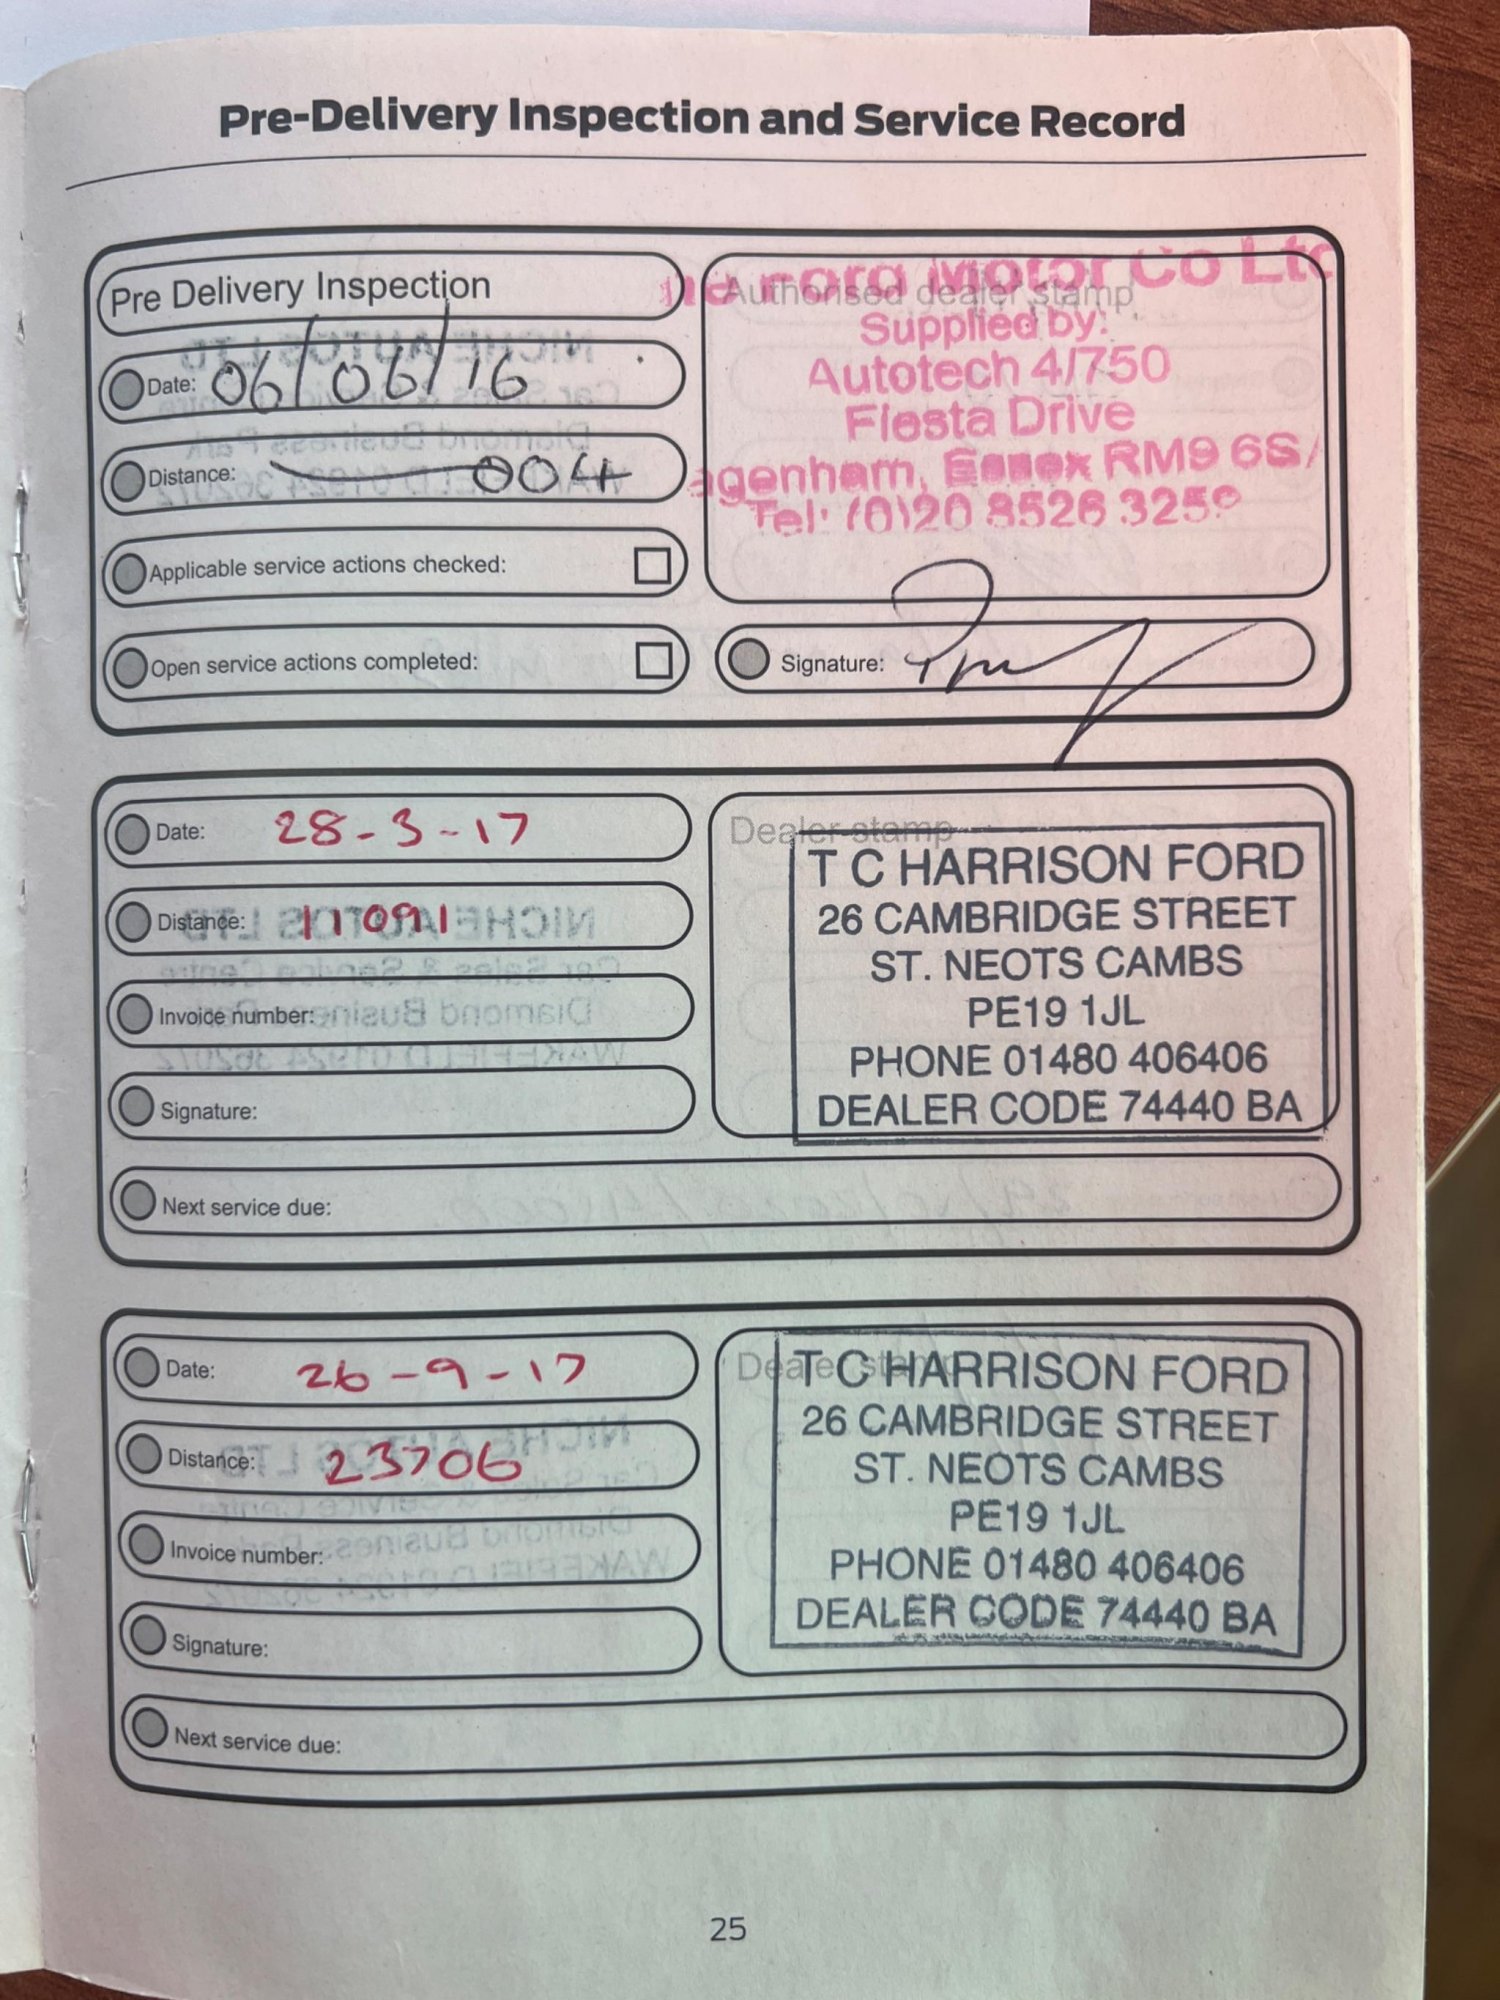 Pre-Delivery Inspection and Service Record
Pre Delivery Inspection
Date: 06/06/16
Distance: 004
Applicable service actions checked:
Open service actions completed:
Authorised dealer stamp
Motor Co Ltd
Supplied by:
Autotech 4/750
Fiesta Drive
agenham, Essex RM9 6S
Tel: (0)20 8526 3259
Signature:
Date: 28-3-17
Distance: 11091
Invoice number:
Signature:
Next service due:
Dealer stamp
T C HARRISON FORD
26 CAMBRIDGE STREET
ST. NEOTS CAMBS
PE19 1JL
PHONE 01480 406406
DEALER CODE 74440 BA
Date: 26-9-17
Distance: 23706
Invoice number:
Signature:
Next service due:
Dealer stamp
T C HARRISON FORD
26 CAMBRIDGE STREET
ST. NEOTS CAMBS
PE19 1JL
PHONE 01480 406406
DEALER CODE 74440 BA
25